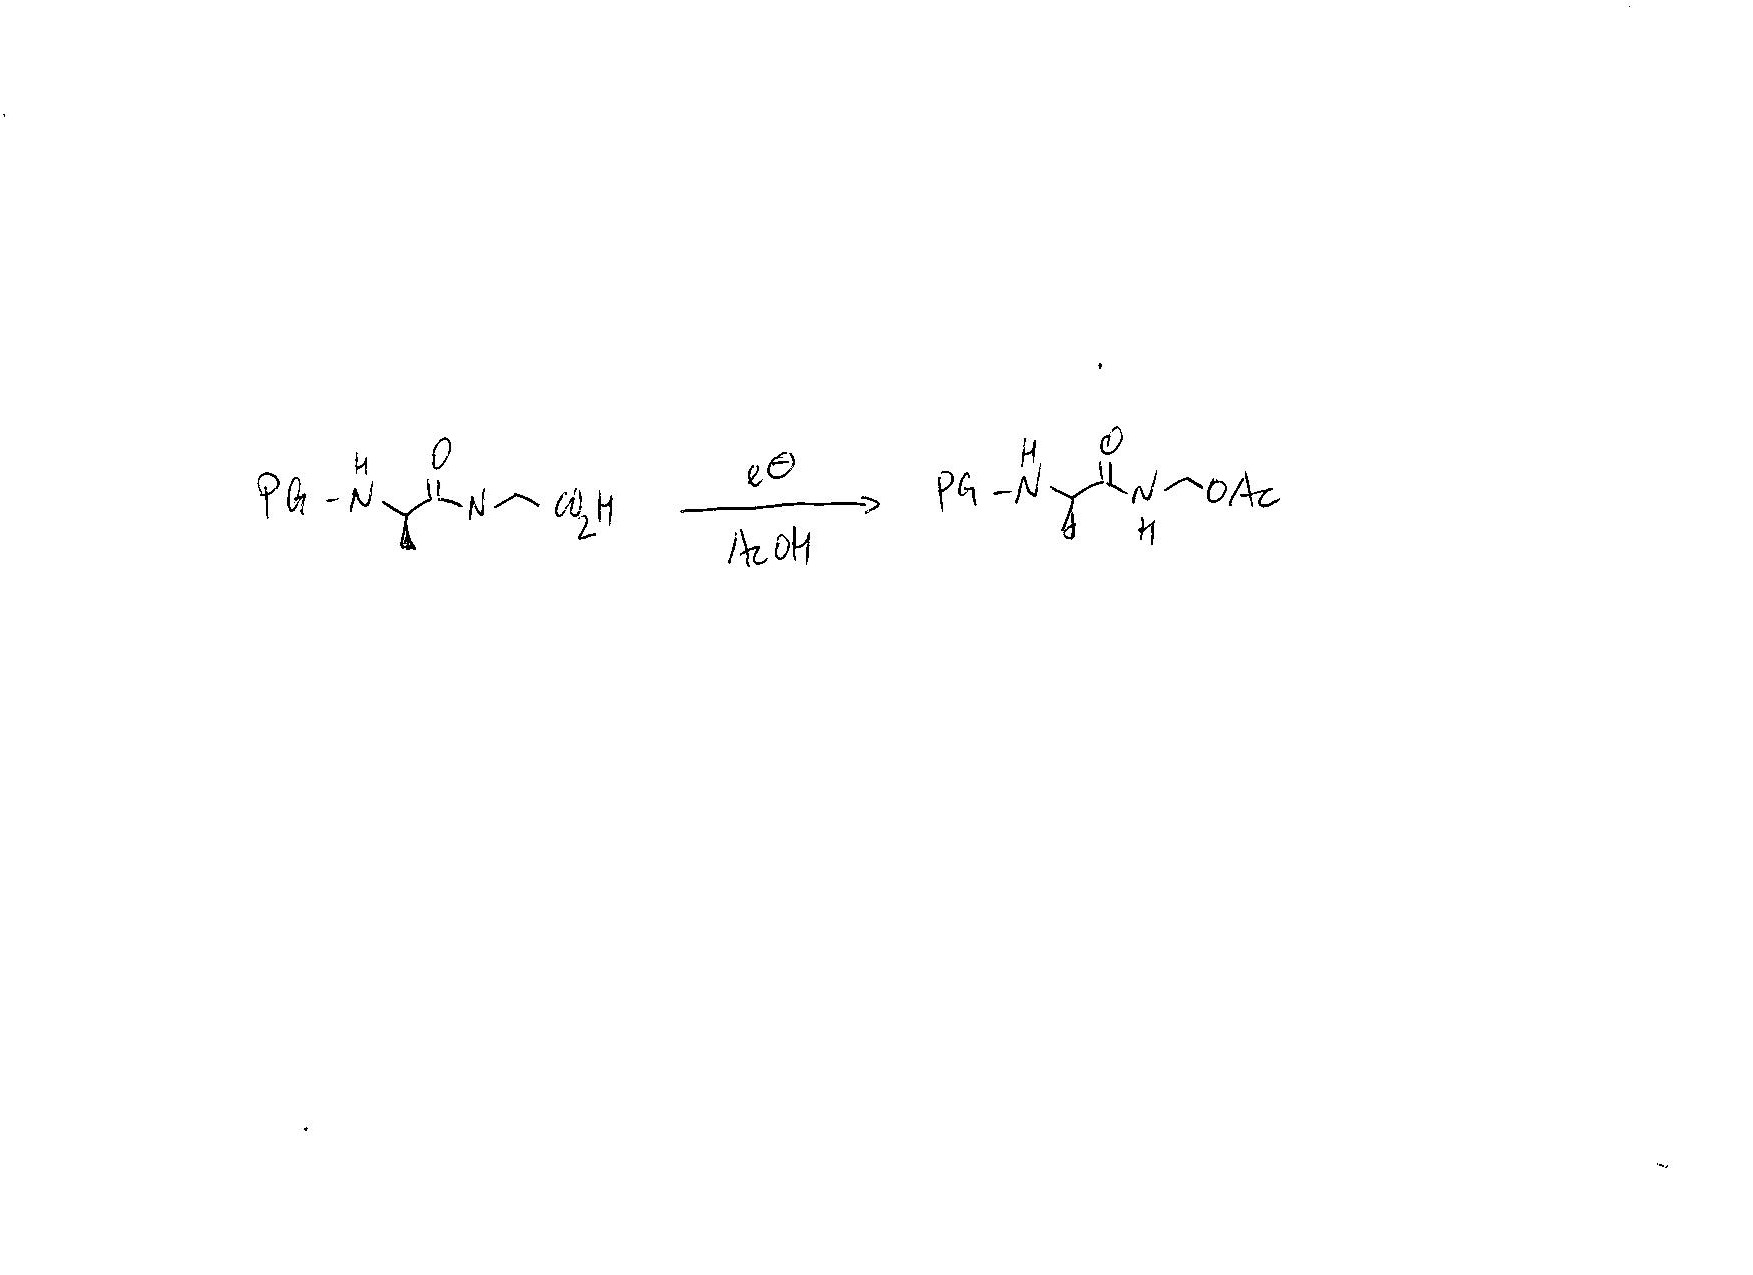 PG-N H O N CO2H
e⊖
AcOH
PG-N H O N H OAc